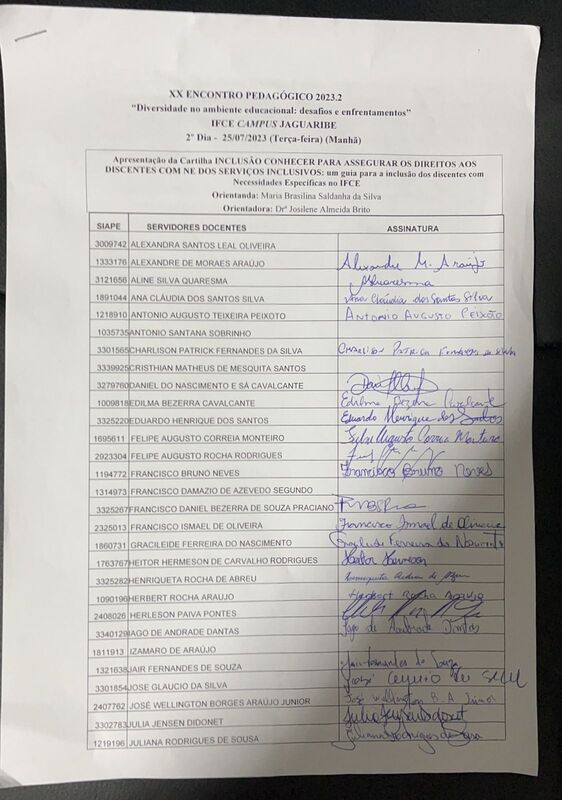 XX ENCONTRO PEDAGÓGICO 2023.2
“Diversidade no ambiente educacional: desafios e enfrentamentos”
IFCE CAMPUS JAGUARIBE
2º Dia - 25/07/2023 (Terça-feira) (Manhã)
Apresentação da Cartilha INCLUSÃO CONHECER PARA ASSEGURAR OS DIREITOS AOS
DISCENTES COM NE DOS SERVIÇOS INCLUSIVOS: um guia para a inclusão dos discentes com
Necessidades Específicas no IFCE
Orientanda: Maria Brasilina Saldanha da Silva
Orientadora: Drª Josilene Almeida Brito
SIAPE SERVIDORES DOCENTES ASSINATURA
3009742 ALEXANDRA SANTOS LEAL OLIVEIRA
1333176 ALEXANDRE DE MORAES ARAÚJO Alexandre M. Araújo
3121656 ALINE SILVA QUARESMA AQuaresma
1891044 ANA CLÁUDIA DOS SANTOS SILVA Ana Cláudia dos Santos Silva
1218910 ANTONIO AUGUSTO TEIXEIRA PEIXOTO ANTONIO AUGUSTO PEIXOTO
1035735 ANTONIO SANTANA SOBRINHO
3301565 CHARLISON PATRICK FERNANDES DA SILVA CHARLISON PATRICK FERNANDES DA SILVA
3339925 CRISTHIAN MATHEUS DE MESQUITA SANTOS
3279760 DANIEL DO NASCIMENTO E SÁ CAVALCANTE
1009818 EDILMA BEZERRA CAVALCANTE Edilma Bezerra Cavalcante
3325220 EDUARDO HENRIQUE DOS SANTOS Eduardo Henrique dos Santos
1695611 FELIPE AUGUSTO CORREIA MONTEIRO Felipe Augusto Correia Monteiro
2923304 FELIPE AUGUSTO ROCHA RODRIGUES
1194772 FRANCISCO BRUNO NEVES Francisco Bruno Neves
1314973 FRANCISCO DAMAZIO DE AZEVEDO SEGUNDO
3325267 FRANCISCO DANIEL BEZERRA DE SOUZA PRACIANO
2325013 FRANCISCO ISMAEL DE OLIVEIRA Francisco Ismael de Oliveira
1860731 GRACILEIDE FERREIRA DO NASCIMENTO Gracileide Ferreira do Nascimento
1763767 HEITOR HERMESON DE CARVALHO RODRIGUES Heitor Hermeson
3325282 HENRIQUETA ROCHA DE ABREU Henriqueta Rocha de Abreu
1090196 HERBERT ROCHA ARAUJO Herbert Rocha Araujo
2408026 HERLESON PAIVA PONTES
3340129 IAGO DE ANDRADE DANTAS Iago de Andrade Dantas
1811913 IZAMARO DE ARAÚJO
1321638 JAIR FERNANDES DE SOUZA Jair Fernandes de Souza
3301854 JOSE GLAUCIO DA SILVA
2407762 JOSÉ WELLINGTON BORGES ARAÚJO JUNIOR José Wellington B. A. Júnior
3302783 JULIA JENSEN DIDONET Julia Jensen Didonet
1219196 JULIANA RODRIGUES DE SOUSA Juliana Rodrigues de Sousa